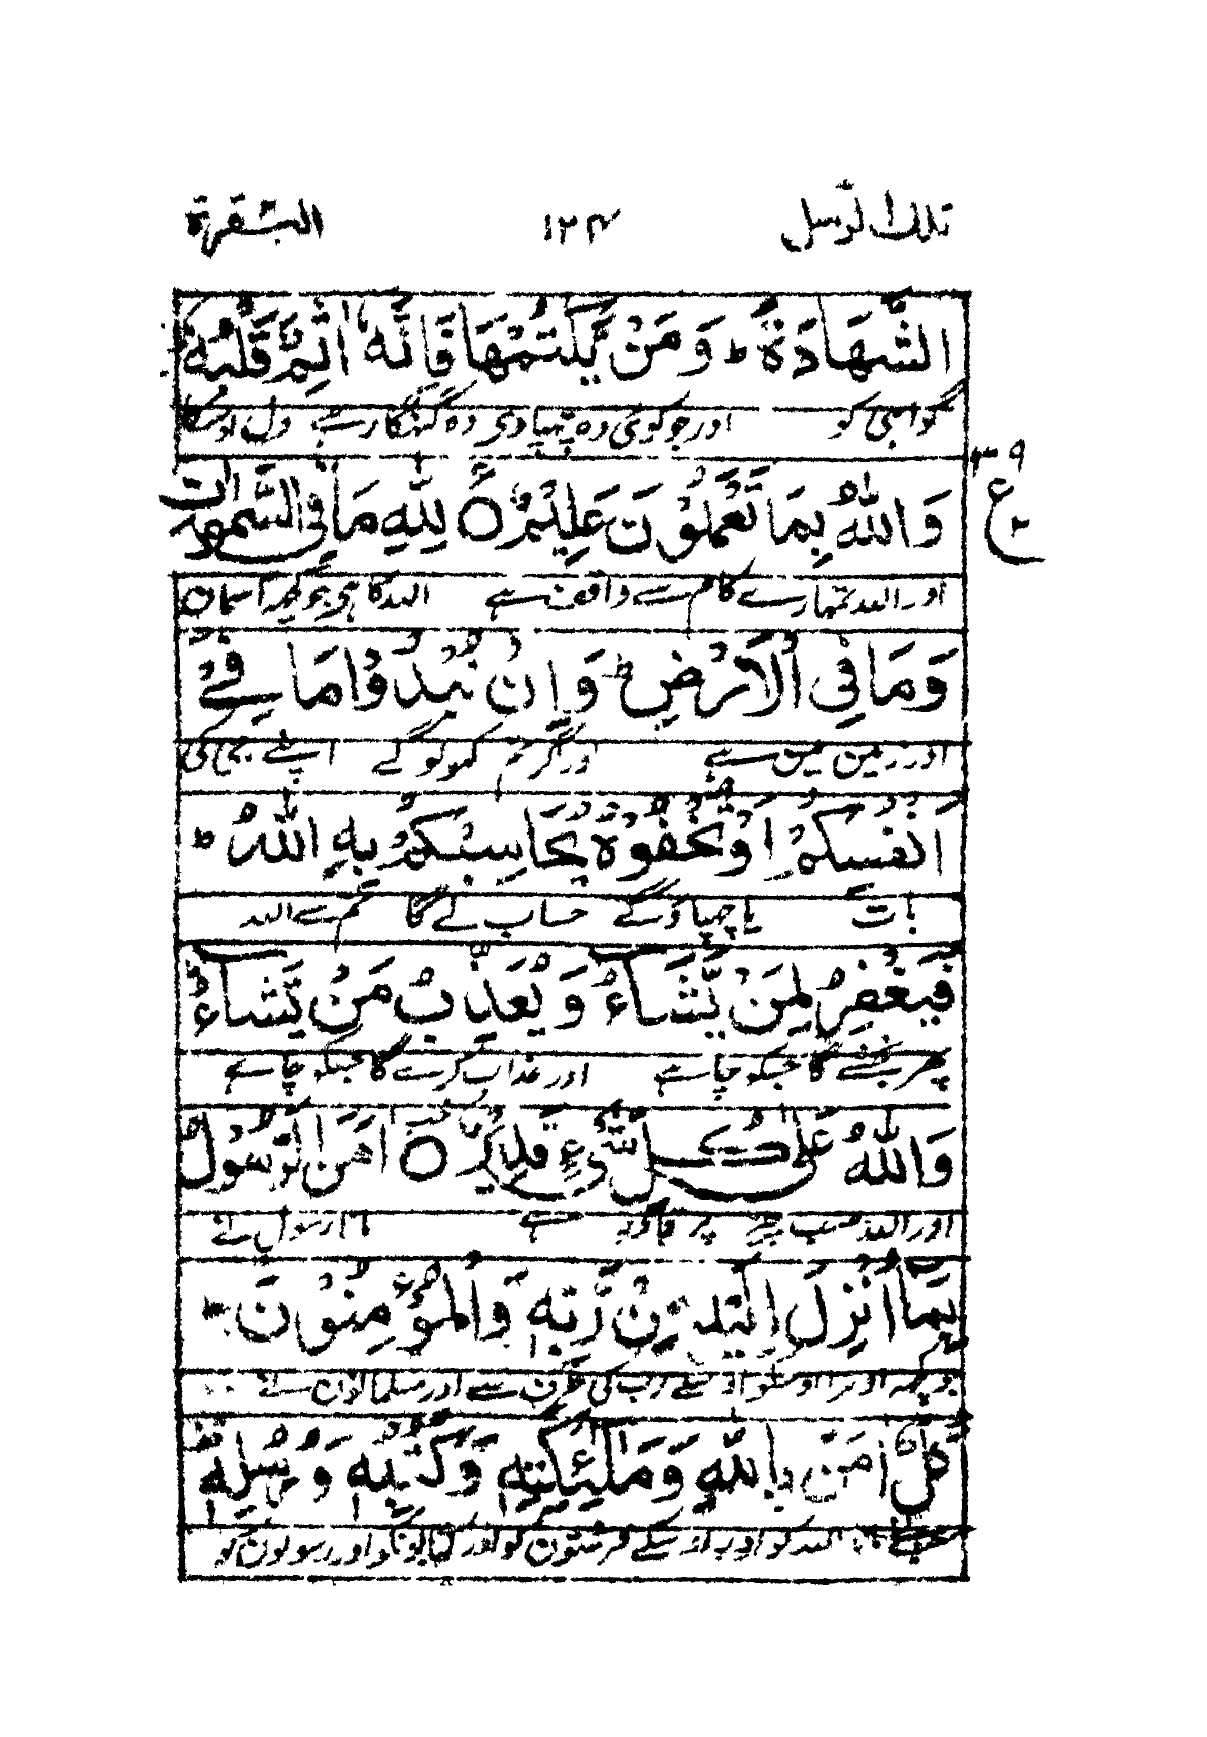 تلك الرسل ۱۲۴ البقرة
الشَّهَادَةَ ط وَ مَنْ يَّكْتُمْهَا فَاِنَّهٗ اٰثِمٌ قَلْبُهٗ
گواہی کو اور جو کوئی وہ چھپا دی وہ گنہگار ہے دل اوسکا
وَ اللّٰهُ بِمَا تَعْمَلُوْنَ عَلِيْمٌ ۝ لِلّٰهِ مَا فِى السَّمٰوٰتِ
۳۹
ع
اور اللہ تمہارے کام سے واقف ہے اللہ کا ہی جو کچھ آسمان
وَ مَا فِى الْاَرْضِ ط وَ اِنْ تُبْدُوْا مَا فِيْٓ
اور زمین میں ہے اور اگر تم کھولو گے اپنے جی کی
اَنْفُسِكُمْ اَوْ تُخْفُوْهُ يُحَاسِبْكُمْ بِهِ اللّٰهُ ط
بات یا چھپاؤ گے حساب لے گا تم سے اللہ
فَيَغْفِرُ لِمَنْ يَّشَآءُ وَ يُعَذِّبُ مَنْ يَّشَآءُ
پھر بخشے گا جسکو چاہے اور عذاب کرے گا جسکو چاہے
وَ اللّٰهُ عَلٰى كُلِّ شَىْءٍ قَدِيْرٌ ۝ اٰمَنَ الرَّسُوْلُ
اور اللہ سب چیز پر قادر ہے مانا رسول نے
بِمَآ اُنْزِلَ اِلَيْهِ مِنْ رَّبِّهٖ وَ الْمُؤْمِنُوْنَ ط
جو کچھ اوترا اوسکو اوسکے رب کی طرف سے اور مسلمانوں نے
كُلٌّ اٰمَنَ بِاللّٰهِ وَ مَلٰٓئِكَتِهٖ وَ كُتُبِهٖ وَ رُسُلِهٖ
اللہ کو اور اوسکے فرشتوں کو اور کتابونکو اور رسولوں کو